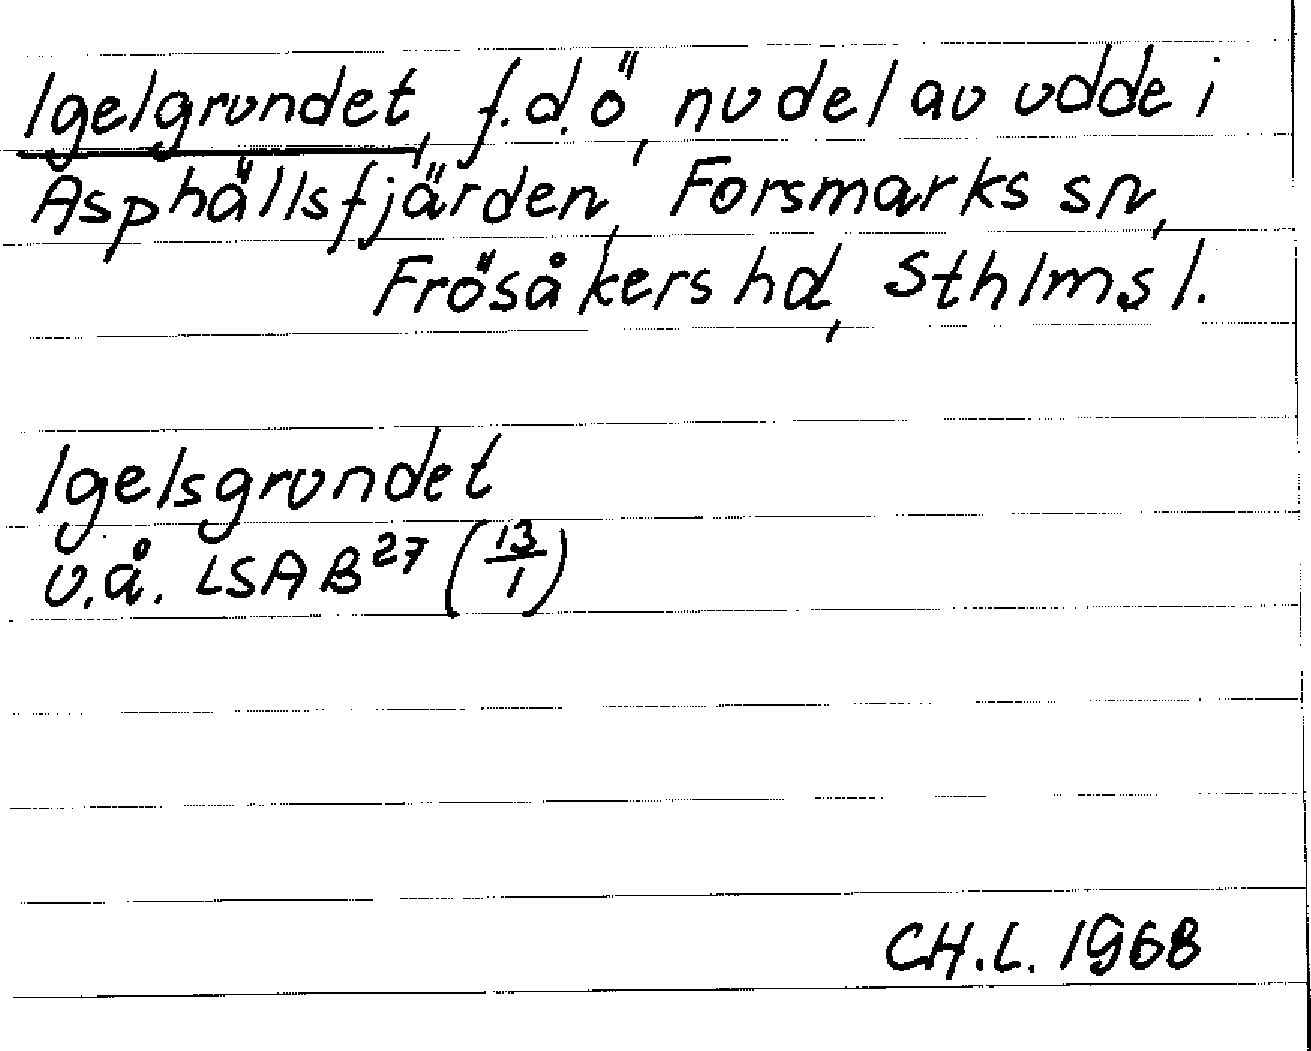 Igelgrundet, f.d. ö, nu del av udde i
Asphällsfjärden, Forsmarks sn,
Frösåkers hd, Sthlms l.
Igelsgrundet
u.å. LSA B27 (13/1)
CH.L. 1968